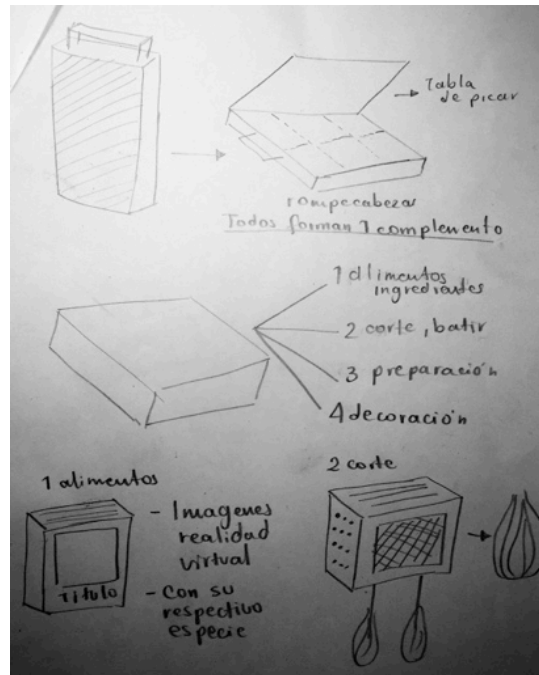 Tabla
de picar
rompecabezas
Todos forman 1 complemento
1 alimentos
ingredientes
2 corte, batir
3 preparación
4 decoración
1 alimentos
- Imagenes
realidad
virtual
Titulo
- Con su
respectivo
especie
2 corte